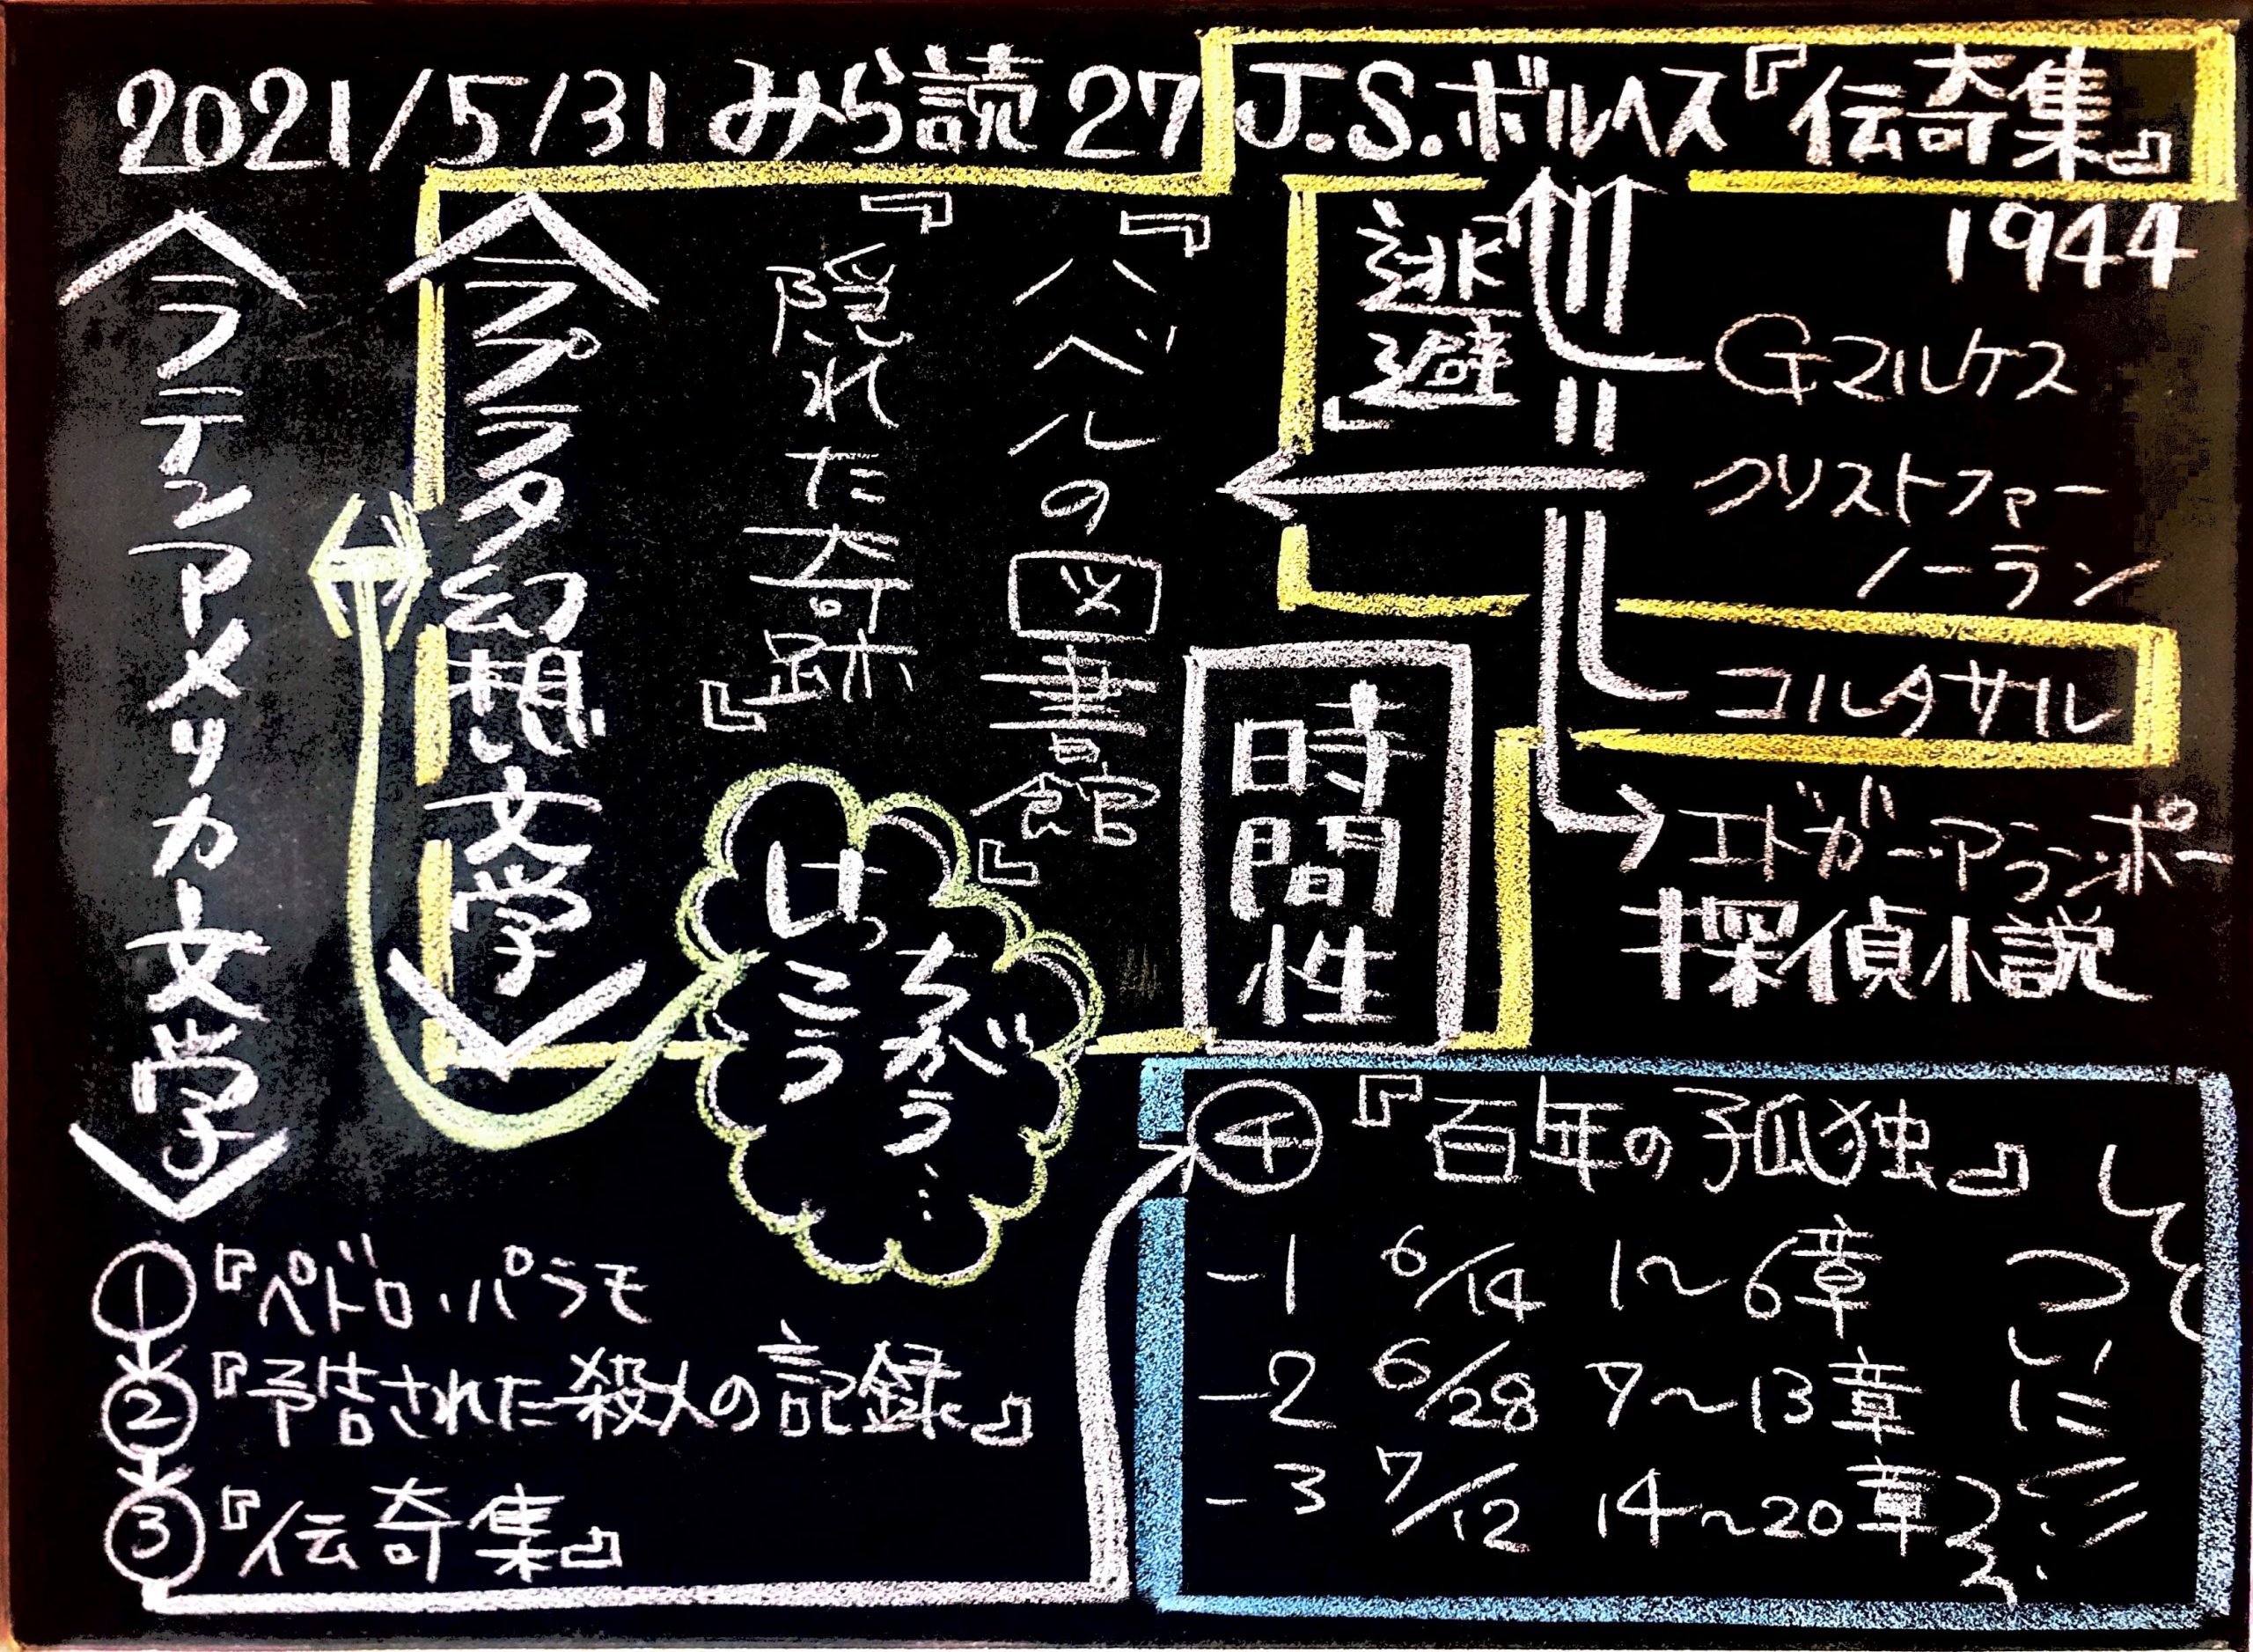 2021/5/31 みら読 27 J.S.ボルヘス『伝奇集』
1944
Gマルケス
クリストファー
ノーラン
コルタサル
エドガー・アラン・ポー
探偵小説
逃避
時間性
『バベルの図書館』
『隠れた奇跡』
〈ラプラタ幻想文学〉
〈ラテンアメリカ文学〉
けっこう
ちがう…
①『ペドロ・パラモ
②『予告された殺人の記録』
③『伝奇集』
④『百年の孤独』
-1 6/14 1〜6章
-2 6/28 7〜13章
-3 7/12 14〜20章
ついに